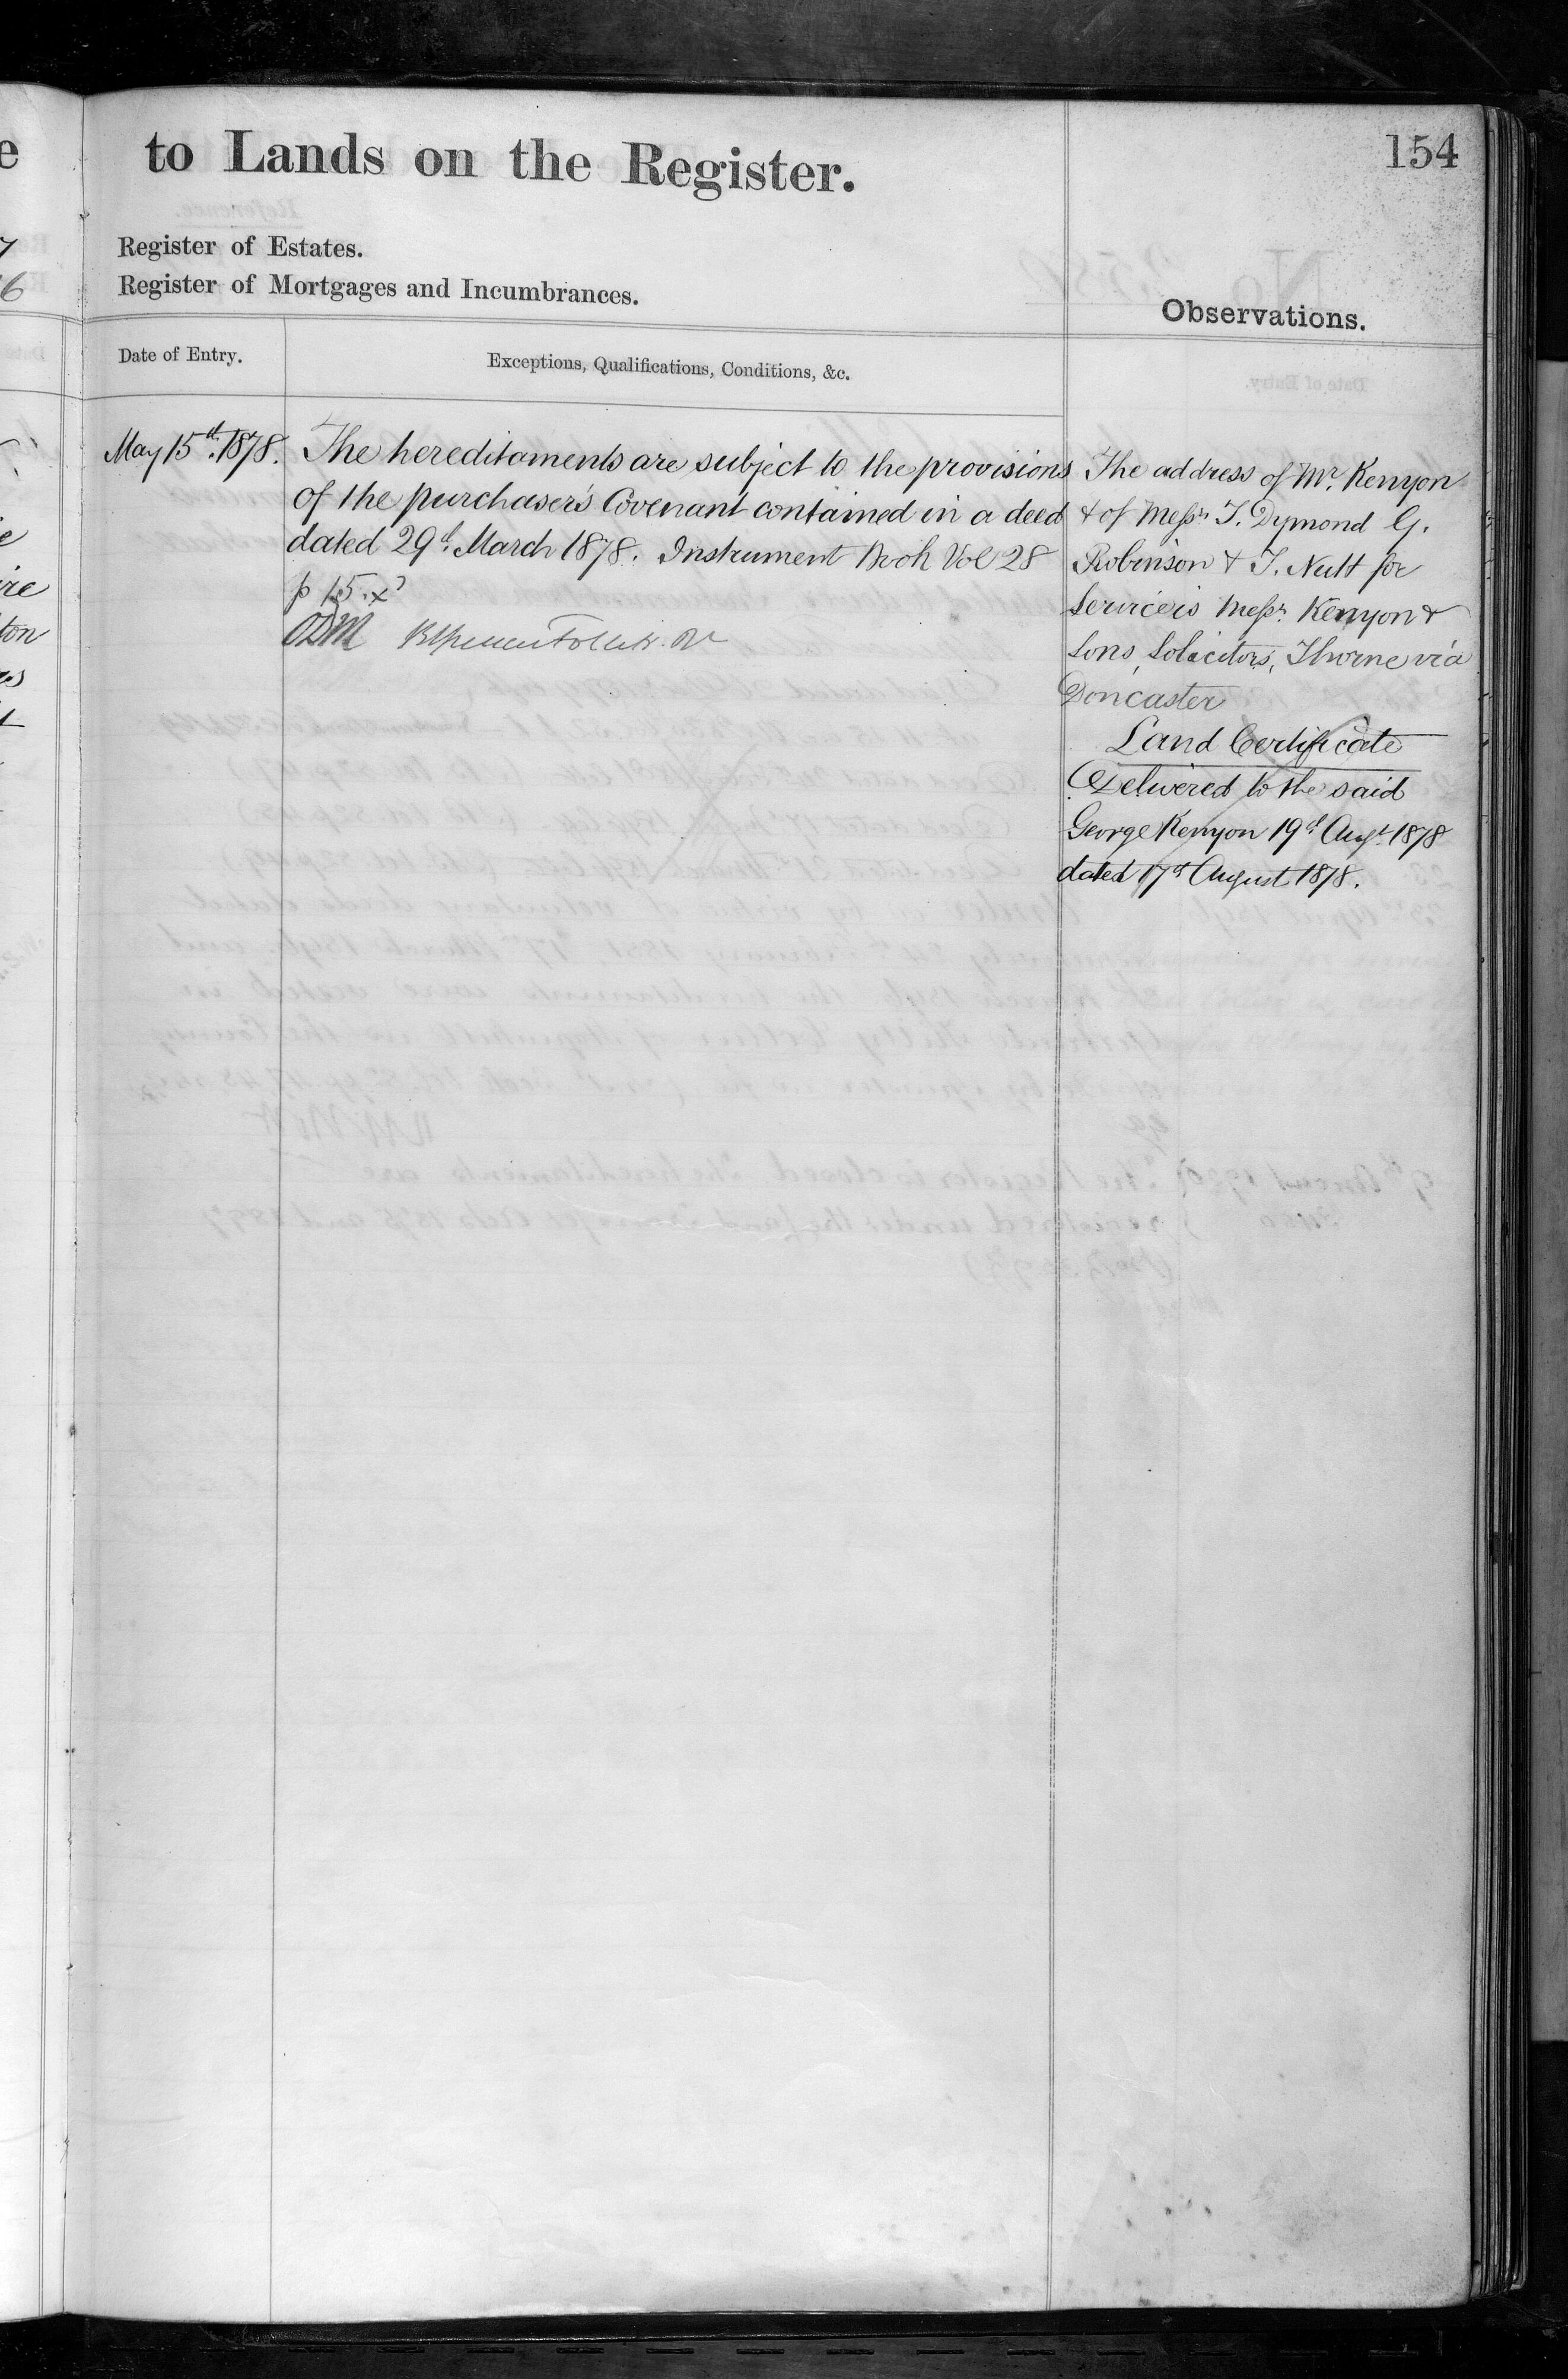 to Lands on the Register.
154
Register of Estates.
Register of Mortgages and Incumbrances.
Observations.
Date of Entry.
Exceptions, Qualifications, Conditions, &c.
May 15th. 1878.
The hereditaments are subject to the provisions
of the purchaser's Covenant contained in a deed
dated 29th March 1878. Instrument Book Vol 28
p 15.
The address of Mr. Kenyon
& of Messrs T. Dymond G.
Robinson & T. Nutt for
Service is Messrs. Kenyon &
Sons, Solicitors, Thorne via
Doncaster
Land Certificate
Delivered to the said
George Kenyon 19th Augt. 1878
dated 17th August 1878.